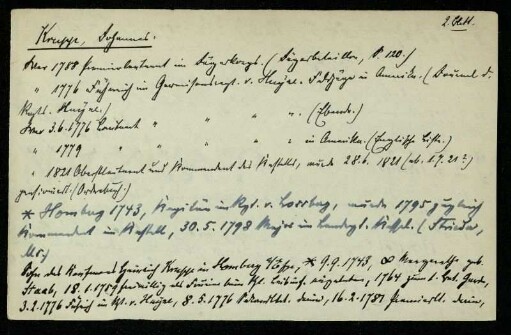 2. Blatt.
Kruppe, Johannes.
War 1788 Premierleutnant im Jägerkorps. (Jägerbataillon, S. 120.)
" 1776 Fähnrich im Garnisonsregt. v. Huyn. Feldzüge in Amerika. (Journal d.
Regts. Huyn.)
War 3.6.1776 Leutnant " " " ". (Ebenda.)
" 1779 " " " " in Amerika. (Englische Liste.)
" 1821 Oberstleutnant und Kommandant des Kastells, wurde 28.6.1821 (ab 1.7.21?)
pensioniert. (Orderbuch.)
* Homberg 1743, Kapitän im Rgt. v. Lossberg, wurde 1795 zugleich
Kommandant im Kastell, 30.5.1798 Major im Landregt. Kassel. (Strieder,
Ms.)
Sohn des Kaufmanns Heinrich Kruppe in Homberg, * 9.9.1743, ∞ Margarethe geb.
Staab, 18.1.1757 freiwillig als im Rgt. eingetreten, 1764 zum Garde,
3.2.1776 Fähnrich im Rgt. v. Huyn, 8.5.1776 Sekondlt. darin, 16.2.1781 Premierlt. darin,